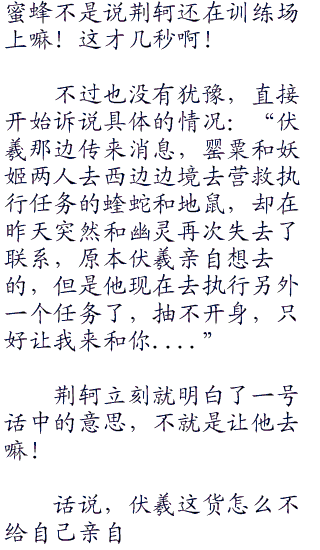 蜜蜂不是说荆轲还在训练场
上嘛！这才几秒啊！
不过也没有犹豫，直接
开始诉说具体的情况：“伏
羲那边传来消息，罂粟和妖
姬两人去西边边境去营救执
行任务的蝰蛇和地鼠，却在
昨天突然和幽灵再次失去了
联系，原本伏羲亲自想去
的，但是他现在去执行另外
一个任务了，抽不开身，只
好让我来和你....”
荆轲立刻就明白了一号
话中的意思，不就是让他去
嘛！
话说，伏羲这货怎么不
给自己亲自